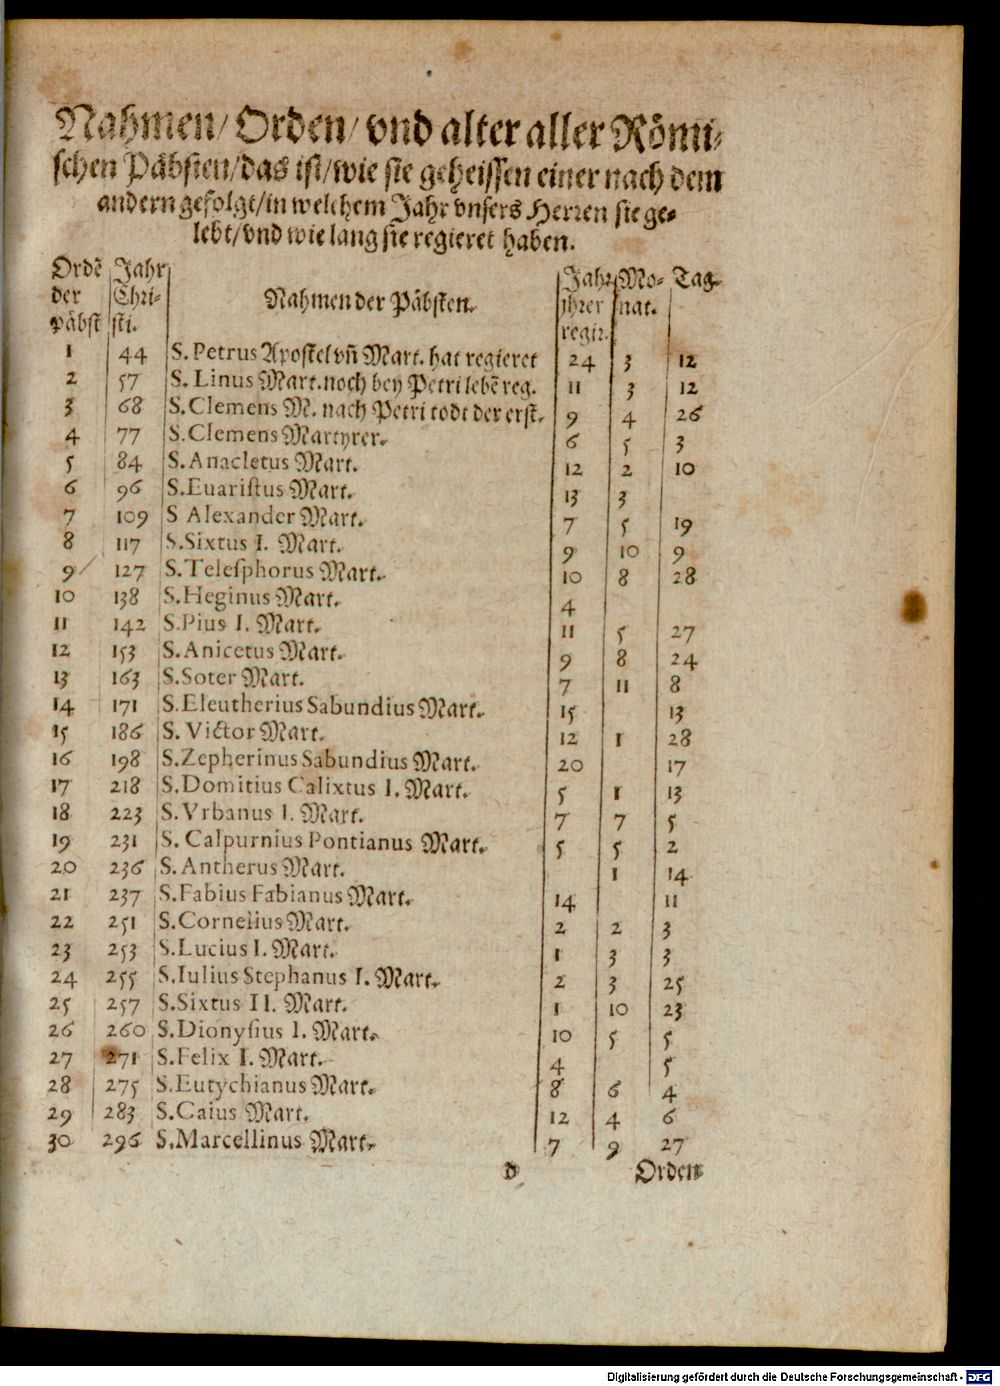 Nahmen/ Orden/ vnd alter aller Römi-
schen Päbsten/das ist/wie sie geheissen einer nach dem
andern gefolgt/in welchem Jahr vnsers Herren sie ge-
lebt/vnd wie lang sie regieret haben.
Ordē Jahr Jahr Mo- Tag.
der Chri- Nahmen der Päbsten. ihrer nat.
päbst sti. regir.
1 44 S. Petrus Apostel vñ Mart. hat regieret 24 3 12
2 57 S. Linus Mart. noch bey Petri lebē reg. 11 3 12
3 68 S. Clemens M. nach Petri todt der erst. 9 4 26
4 77 S. Clemens Martyrer. 6 5 3
5 84 S. Anacletus Mart. 12 2 10
6 96 S. Euaristus Mart. 13 3
7 109 S Alexander Mart. 7 5 19
8 117 S. Sixtus I. Mart. 9 10 9
9 127 S. Telesphorus Mart. 10 8 28
10 138 S. Heginus Mart. 4
11 142 S. Pius I. Mart. 11 5 27
12 153 S. Anicetus Mart. 9 8 24
13 163 S. Soter Mart. 7 11 8
14 171 S. Eleutherius Sabundius Mart. 15 13
15 186 S. Victor Mart. 12 1 28
16 198 S. Zepherinus Sabundius Mart. 20 17
17 218 S. Domitius Calixtus I. Mart. 5 1 13
18 223 S. Vrbanus I. Mart. 7 7 5
19 231 S. Calpurnius Pontianus Mart. 5 5 2
20 236 S. Antherus Mart. 1 14
21 237 S. Fabius Fabianus Mart. 14 11
22 251 S. Cornelius Mart. 2 2 3
23 253 S. Lucius I. Mart. 1 3 3
24 255 S. Iulius Stephanus I. Mart. 2 3 25
25 257 S. Sixtus II. Mart. 1 10 23
26 260 S. Dionysius I. Mart. 10 5 5
27 271 S. Felix I. Mart. 4 5
28 275 S. Eutychianus Mart. 8 6 4
29 283 S. Caius Mart. 12 4 6
30 296 S. Marcellinus Mart. 7 9 27
d Orden
Digitalisierung gefördert durch die Deutsche Forschungsgemeinschaft - DFG